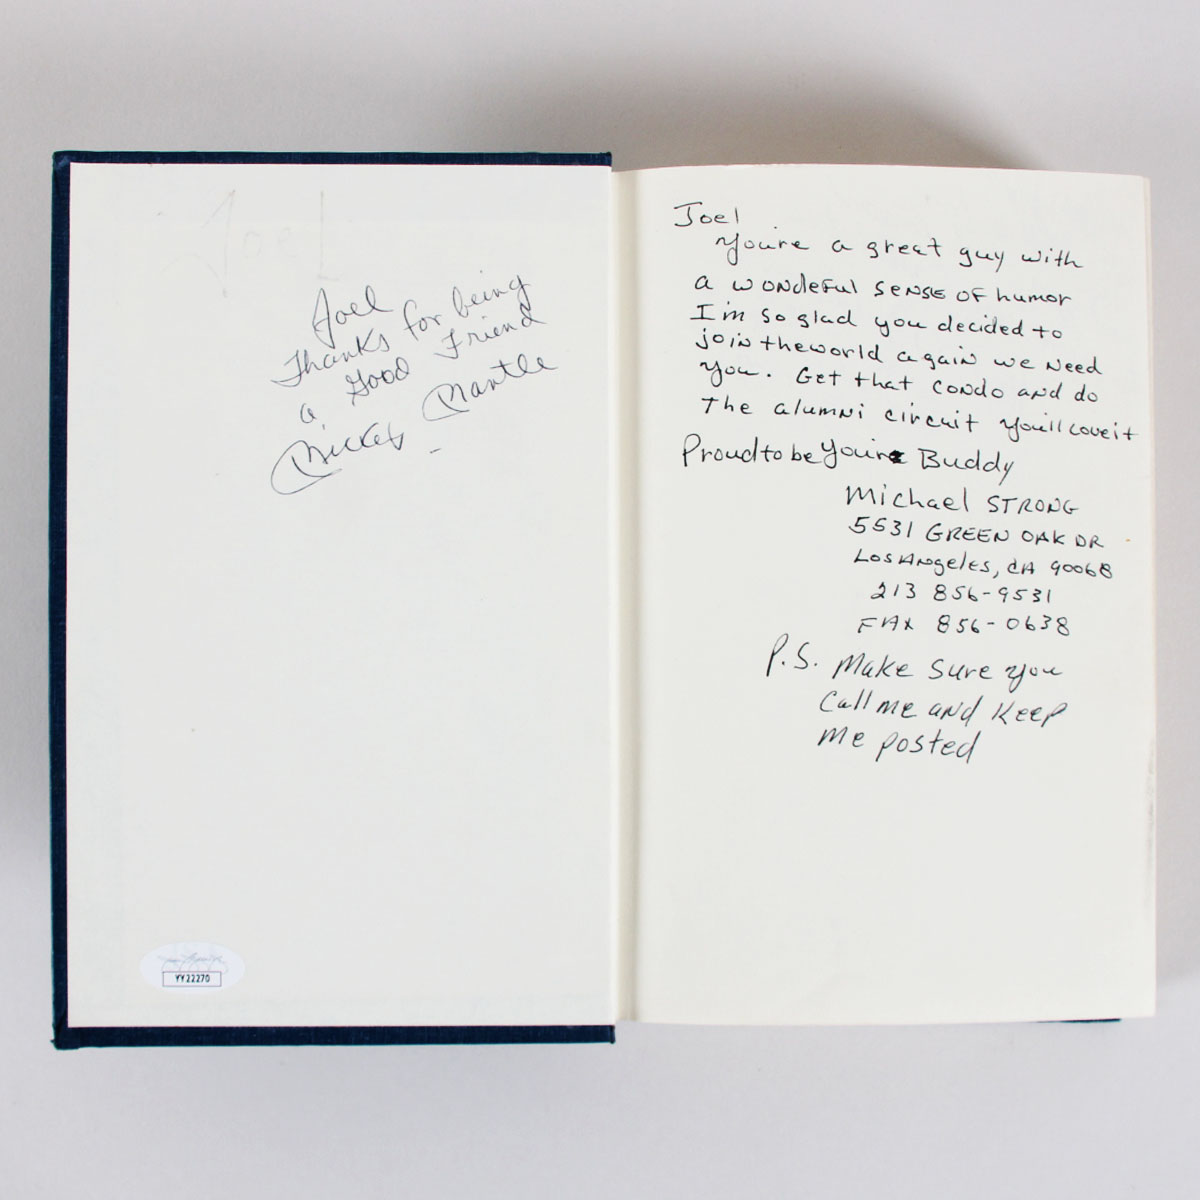 Joel
Joel
Thanks for being
a Good Friend
Mickey Mantle
YY22270
Joel
You're a great guy with
a wondeful sense of humor
I'm so glad you decided to
join the world again we need
you. Get that condo and do
the alumni circuit you'll love it
Proud to be Your Buddy
Michael STRONG
5531 GREEN OAK DR
Los Angeles, CA 90068
213 856-9531
FAX 856-0638
P.S. Make Sure you
Call me and Keep
me posted